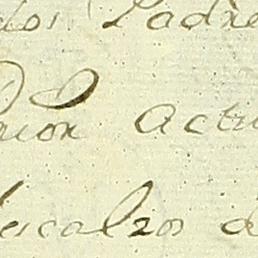 dos Padre
nion actu
escalzos d